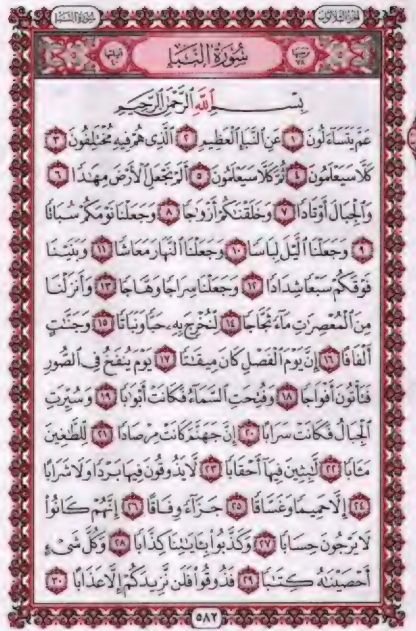 سُورَةُ النَّبَإِ
الجزء الثلاثون
سُورَةُ النَّبَإِ
ترتيبها ٧٨
آياتها ٤٠
بِسْمِ اللَّهِ الرَّحْمَٰنِ الرَّحِيمِ
عَمَّ يَتَسَاءَلُونَ ١ عَنِ النَّبَإِ الْعَظِيمِ ٢ الَّذِي هُمْ فِيهِ مُخْتَلِفُونَ ٣
كَلَّا سَيَعْلَمُونَ ٤ ثُمَّ كَلَّا سَيَعْلَمُونَ ٥ أَلَمْ نَجْعَلِ الْأَرْضَ مِهَٰدًا ٦
وَالْجِبَالَ أَوْتَادًا ٧ وَخَلَقْنَٰكُمْ أَزْوَٰجًا ٨ وَجَعَلْنَا نَوْمَكُمْ سُبَاتًا
٩ وَجَعَلْنَا الَّيْلَ لِبَاسًا ١٠ وَجَعَلْنَا النَّهَارَ مَعَاشًا ١١ وَبَنَيْنَا
فَوْقَكُمْ سَبْعًا شِدَادًا ١٢ وَجَعَلْنَا سِرَاجًا وَهَّاجًا ١٣ وَأَنزَلْنَا
مِنَ الْمُعْصِرَٰتِ مَآءً ثَجَّاجًا ١٤ لِّنُخْرِجَ بِهِ حَبًّا وَنَبَاتًا ١٥ وَجَنَّٰتٍ
أَلْفَافًا ١٦ إِنَّ يَوْمَ الْفَصْلِ كَانَ مِيقَٰتًا ١٧ يَوْمَ يُنفَخُ فِي الصُّورِ
فَتَأْتُونَ أَفْوَاجًا ١٨ وَفُتِحَتِ السَّمَآءُ فَكَانَتْ أَبْوَٰبًا ١٩ وَسُيِّرَتِ
الْجِبَالُ فَكَانَتْ سَرَابًا ٢٠ إِنَّ جَهَنَّمَ كَانَتْ مِرْصَادًا ٢١ لِّلطَّٰغِينَ
مَـَٔابًا ٢٢ لَّٰبِثِينَ فِيهَآ أَحْقَابًا ٢٣ لَّا يَذُوقُونَ فِيهَا بَرْدًا وَلَا شَرَابًا
٢٤ إِلَّا حَمِيمًا وَغَسَّاقًا ٢٥ جَزَآءً وِفَاقًا ٢٦ إِنَّهُمْ كَانُوا۟
لَا يَرْجُونَ حِسَابًا ٢٧ وَكَذَّبُوا۟ بِـَٔايَٰتِنَا كِذَّابًا ٢٨ وَكُلَّ شَيْءٍ
أَحْصَيْنَٰهُ كِتَٰبًا ٢٩ فَذُوقُوا۟ فَلَن نَّزِيدَكُمْ إِلَّا عَذَابًا ٣٠
٥٨٢